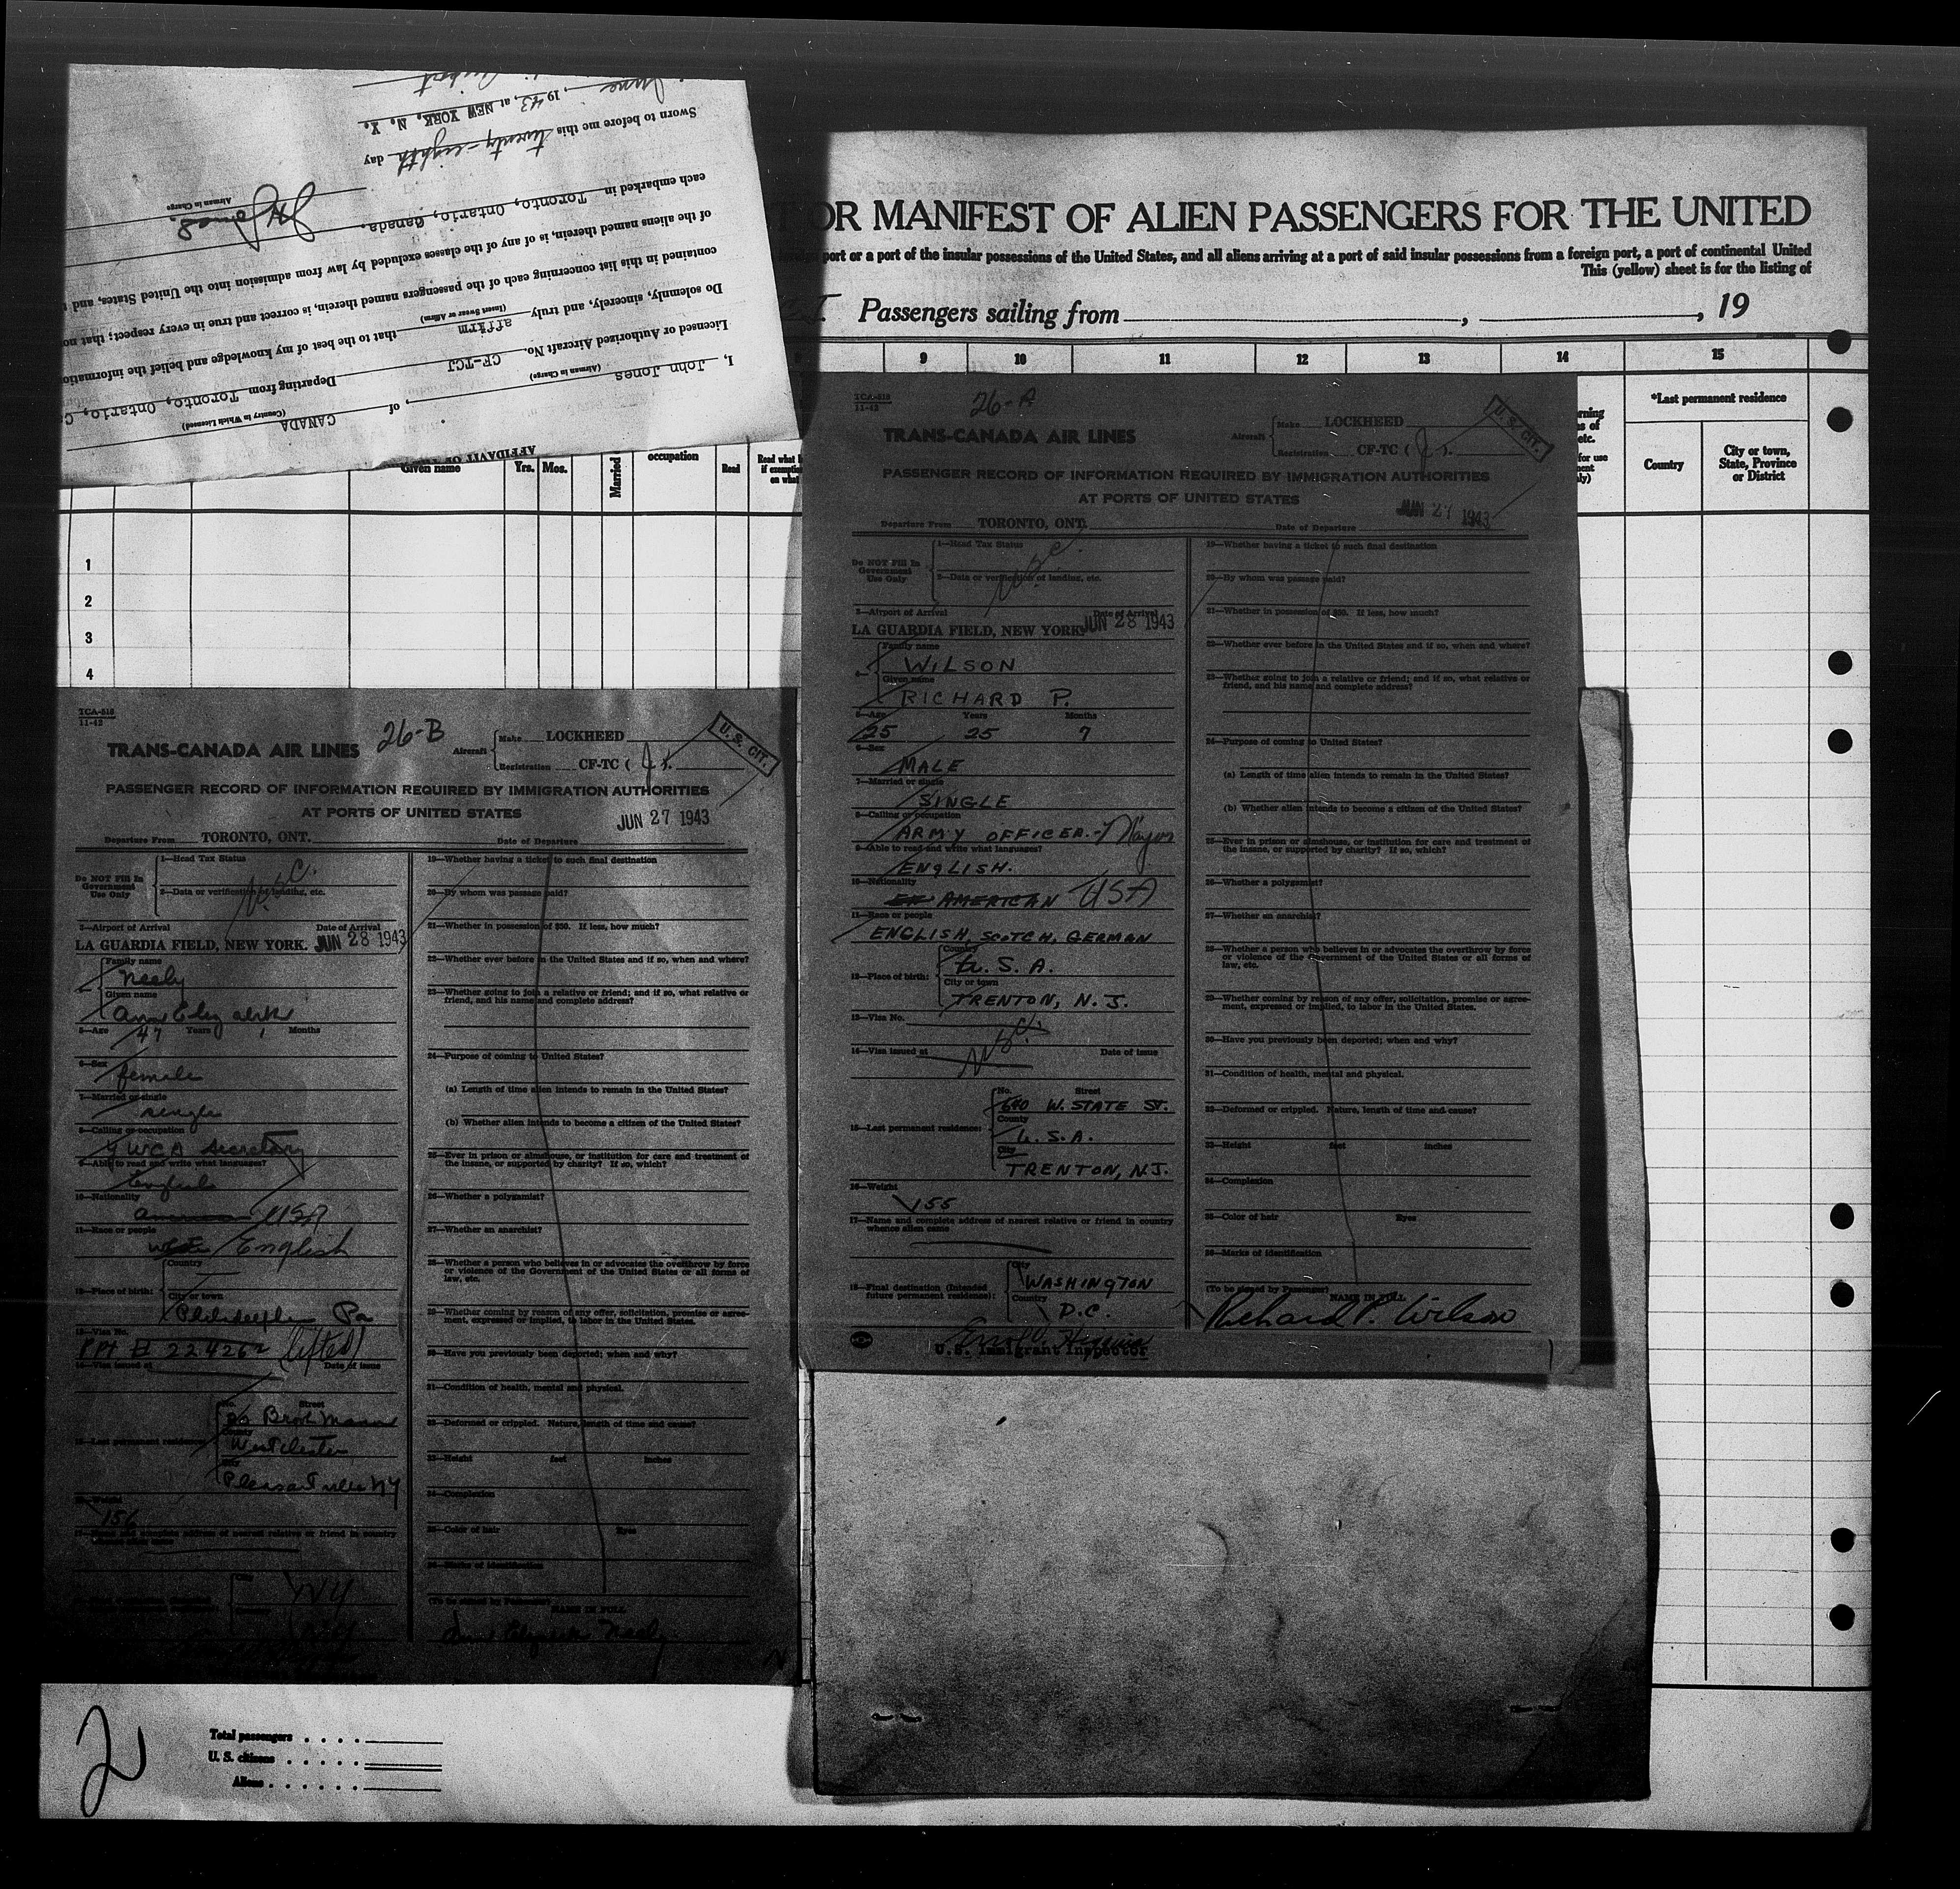 I, John Jones, of CANADA
(Airman in Charge) (Country in Which Licensed)
Licensed or Authorized Aircraft No. CF-TCJ Departing from Toronto, Ontario,
Do solemnly, sincerely, and truly affirm that to the best of my knowledge and belief the information
(Insert Swear or Affirm)
contained in this list concerning each of the passengers named therein, is correct and true in every respect; that
of the aliens named therein, is of any of the classes excluded by law from admission into the United States, and
each embarked in Toronto, Ontario, Canada.
J Jones.
Airman in Charge
Sworn to before me this twenty-eighth day
June, 1943, at NEW YORK, N. Y.
AFFIDAVIT OF THE
OR MANIFEST OF ALIEN PASSENGERS FOR THE UNITED
port or a port of the insular possessions of the United States, and all aliens arriving at a port of said insular possessions from a foreign port, a port of continental United
This (yellow) sheet is for the listing of
Passengers sailing from , , 19
9 10 11 12 13 14 15
*Last permanent residence
Country
City or town, State, Province or District
Given name Yrs. Mos. Married occupation Read
1
2
3
4
TCA-518
11-42
26-A
TRANS-CANADA AIR LINES
Aircraft Make LOCKHEED
Registration CF-TC ( J ).
U. S. CIT.
PASSENGER RECORD OF INFORMATION REQUIRED BY IMMIGRATION AUTHORITIES
AT PORTS OF UNITED STATES
Departure From TORONTO, ONT. Date of Departure JUN 27 1943
Do NOT Fill In Government Use Only
1—Head Tax Status
2—Data or verification of landing, etc.
3—Airport of Arrival Date of Arrival
LA GUARDIA FIELD, NEW YORK. JUN 28 1943
4— Family name
WILSON
Given name
RICHARD P.
5—Age Years Months
25 25 7
6—Sex
MALE
7—Married or single
SINGLE
8—Calling or occupation
ARMY OFFICER.- Major
9—Able to read and write what languages?
ENGLISH.
10—Nationality
AMERICAN USA
11—Race or people
ENGLISH, SCOTCH, GERMAN
12—Place of birth: Country
U. S. A.
City or town
TRENTON, N. J.
13—Visa No.
14—Visa issued at Date of issue
15—Last permanent residence: No. Street
640 W. STATE ST.
County
U. S. A.
City
TRENTON, N.J.
16—Weight
155
17—Name and complete address of nearest relative or friend in country whence alien came
18—Final destination (Intended future permanent residence): City
WASHINGTON
Country
D.C.
U. S. Immigrant Inspector
19—Whether having a ticket to such final destination
20—By whom was passage paid?
21—Whether in possession of $50. If less, how much?
22—Whether ever before in the United States and if so, when and where?
23—Whether going to join a relative or friend; and if so, what relative or friend, and his name and complete address?
24—Purpose of coming to United States?
(a) Length of time alien intends to remain in the United States?
(b) Whether alien intends to become a citizen of the United States?
25—Ever in prison or almshouse, or institution for care and treatment of the insane, or supported by charity? If so, which?
26—Whether a polygamist?
27—Whether an anarchist?
28—Whether a person who believes in or advocates the overthrow by force or violence of the Government of the United States or all forms of law, etc.
29—Whether coming by reason of any offer, solicitation, promise or agreement, expressed or implied, to labor in the United States.
30—Have you previously been deported; when and why?
31—Condition of health, mental and physical.
32—Deformed or crippled. Nature, length of time and cause?
33—Height feet inches
34—Complexion
35—Color of hair Eyes
36—Marks of identification
(To be signed by Passenger) NAME IN FULL
Richard P. Wilson
TCA-518
11-42
26-B
TRANS-CANADA AIR LINES
Aircraft Make LOCKHEED
Registration CF-TC ( J ).
U. S. CIT.
PASSENGER RECORD OF INFORMATION REQUIRED BY IMMIGRATION AUTHORITIES
AT PORTS OF UNITED STATES
Departure From TORONTO, ONT. Date of Departure JUN 27 1943
Do NOT Fill In Government Use Only
1—Head Tax Status
2—Data or verification of landing, etc.
3—Airport of Arrival Date of Arrival
LA GUARDIA FIELD, NEW YORK. JUN 28 1943
Family name
Neely
Given name
Ann Elizabeth
5—Age 47 Years 1 Months
6—Sex
female
7—Married or single
single
8—Calling or occupation
YWCA secretary
9—Able to read and write what languages?
English
10—Nationality
American USA
11—Race or people
white English
12—Place of birth: Country
City or town
Philadelphia Pa
13—Visa No.
22426 (lifted)
14—Visa issued at Date of issue
15—Last permanent residence: No. Street
County
Westchester
City
Pleasantville NY
16—Weight
156
17—Name and complete address of nearest relative or friend in country
City
NY
Country
19—Whether having a ticket to such final destination
20—By whom was passage paid?
21—Whether in possession of $50. If less, how much?
22—Whether ever before in the United States and if so, when and where?
23—Whether going to join a relative or friend; and if so, what relative or friend, and his name and complete address?
24—Purpose of coming to United States?
(a) Length of time alien intends to remain in the United States?
(b) Whether alien intends to become a citizen of the United States?
25—Ever in prison or almshouse, or institution for care and treatment of the insane, or supported by charity? If so, which?
26—Whether a polygamist?
27—Whether an anarchist?
28—Whether a person who believes in or advocates the overthrow by force or violence of the Government of the United States or all forms of law, etc.
29—Whether coming by reason of any offer, solicitation, promise or agreement, expressed or implied, to labor in the United States.
30—Have you previously been deported; when and why?
31—Condition of health, mental and physical.
32—Deformed or crippled. Nature, length of time and cause?
33—Height feet inches
34—Complexion
35—Color of hair Eyes
36—Marks of identification
(To be signed by Passenger) NAME IN FULL
Ann Elizabeth Neely
2
Total passengers . . . .
U. S. citizens . . . . .
Aliens . . . . . .